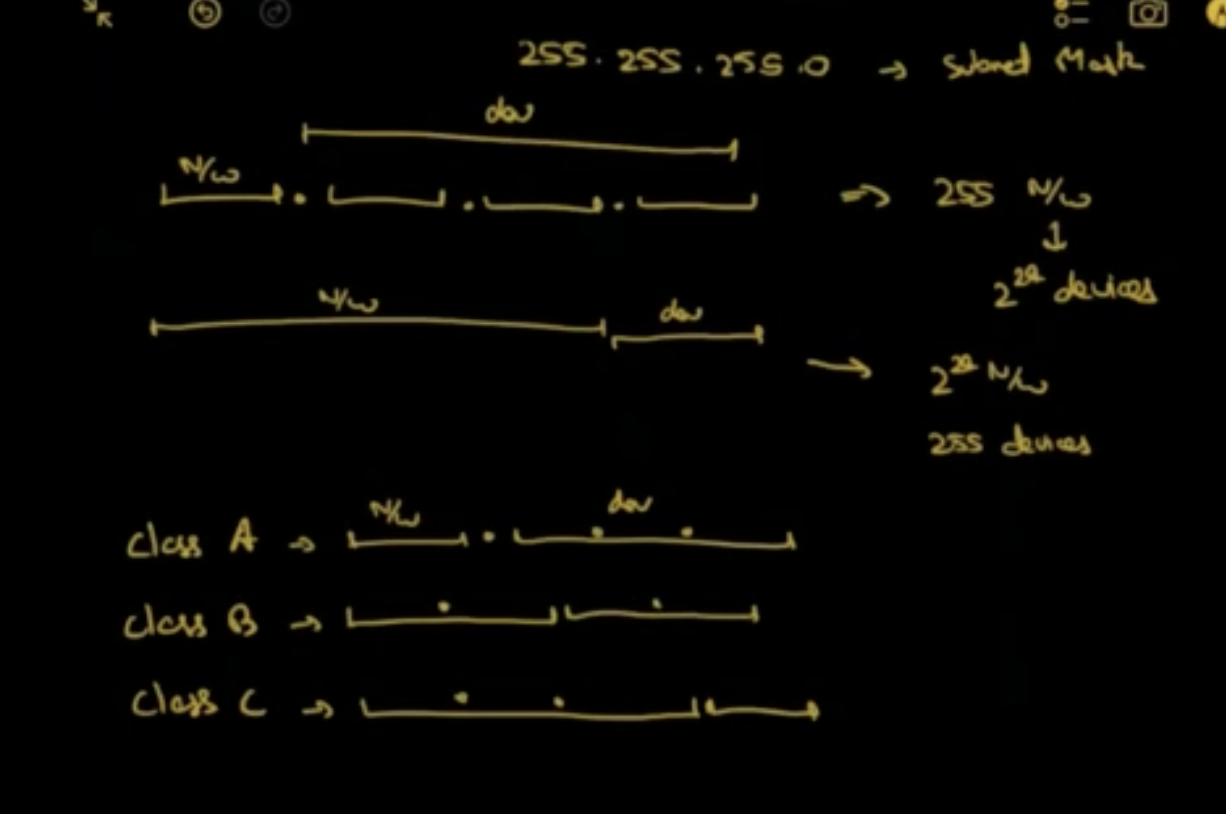 255.255.255.0 → Subnet Mask
dev
N/w
. . . ⇒ 255 N/w
↓
devices
N/w dev
→ N/w
255 devices
N/w dev
Class A → .
Class B →
Class C →